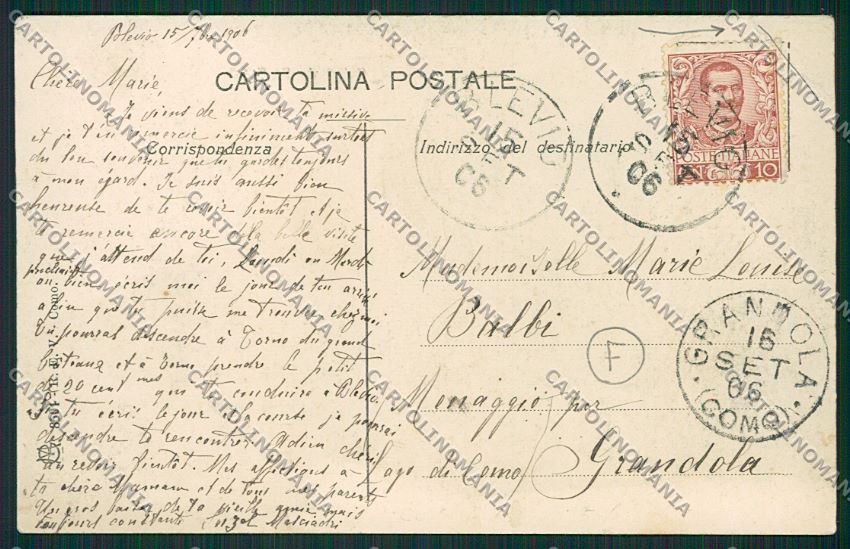 Blevio 15/7bre 1906
CARTOLINA POSTALE
Chère Marie,
Je viens de recevoir ta missive
et je t'en remercie infiniment surtout
du bon souvenir que tu gardes toujours
à mon égard. Je suis aussi bien
heureuse de te revoir bientôt et je
te remercie encore de la belle visite
que j'attend de toi, Lundi ou Mardi
prochain
ou bien écris moi le jour de ton arrivée
afin que tu puisse me trouver chez moi
Tu pourras descendre à Torno du grand
bateaux et à Torno prendre le petit
de 20 cent mes qui te conduira à Blevio
Si tu écris le jour et la course je pourrai
descendre te rencontrer. Adieu chérie
au revoir bientôt. Mes affections à
ta chère Maman et de tous mes parents
Un gros baiser de ta vieille amie mais
toujours constante Masciadri
Corrispondenza
Indirizzo del destinatario
BLEVIO
15
SET
06
POSTE ITALIANE
10
Mademoiselle Marie Louise
Balbi
Menaggio per
Grandola
Lago di Como
F
GRANDOLA
16
SET
06
(COMO)
CARTOLINOMANIA